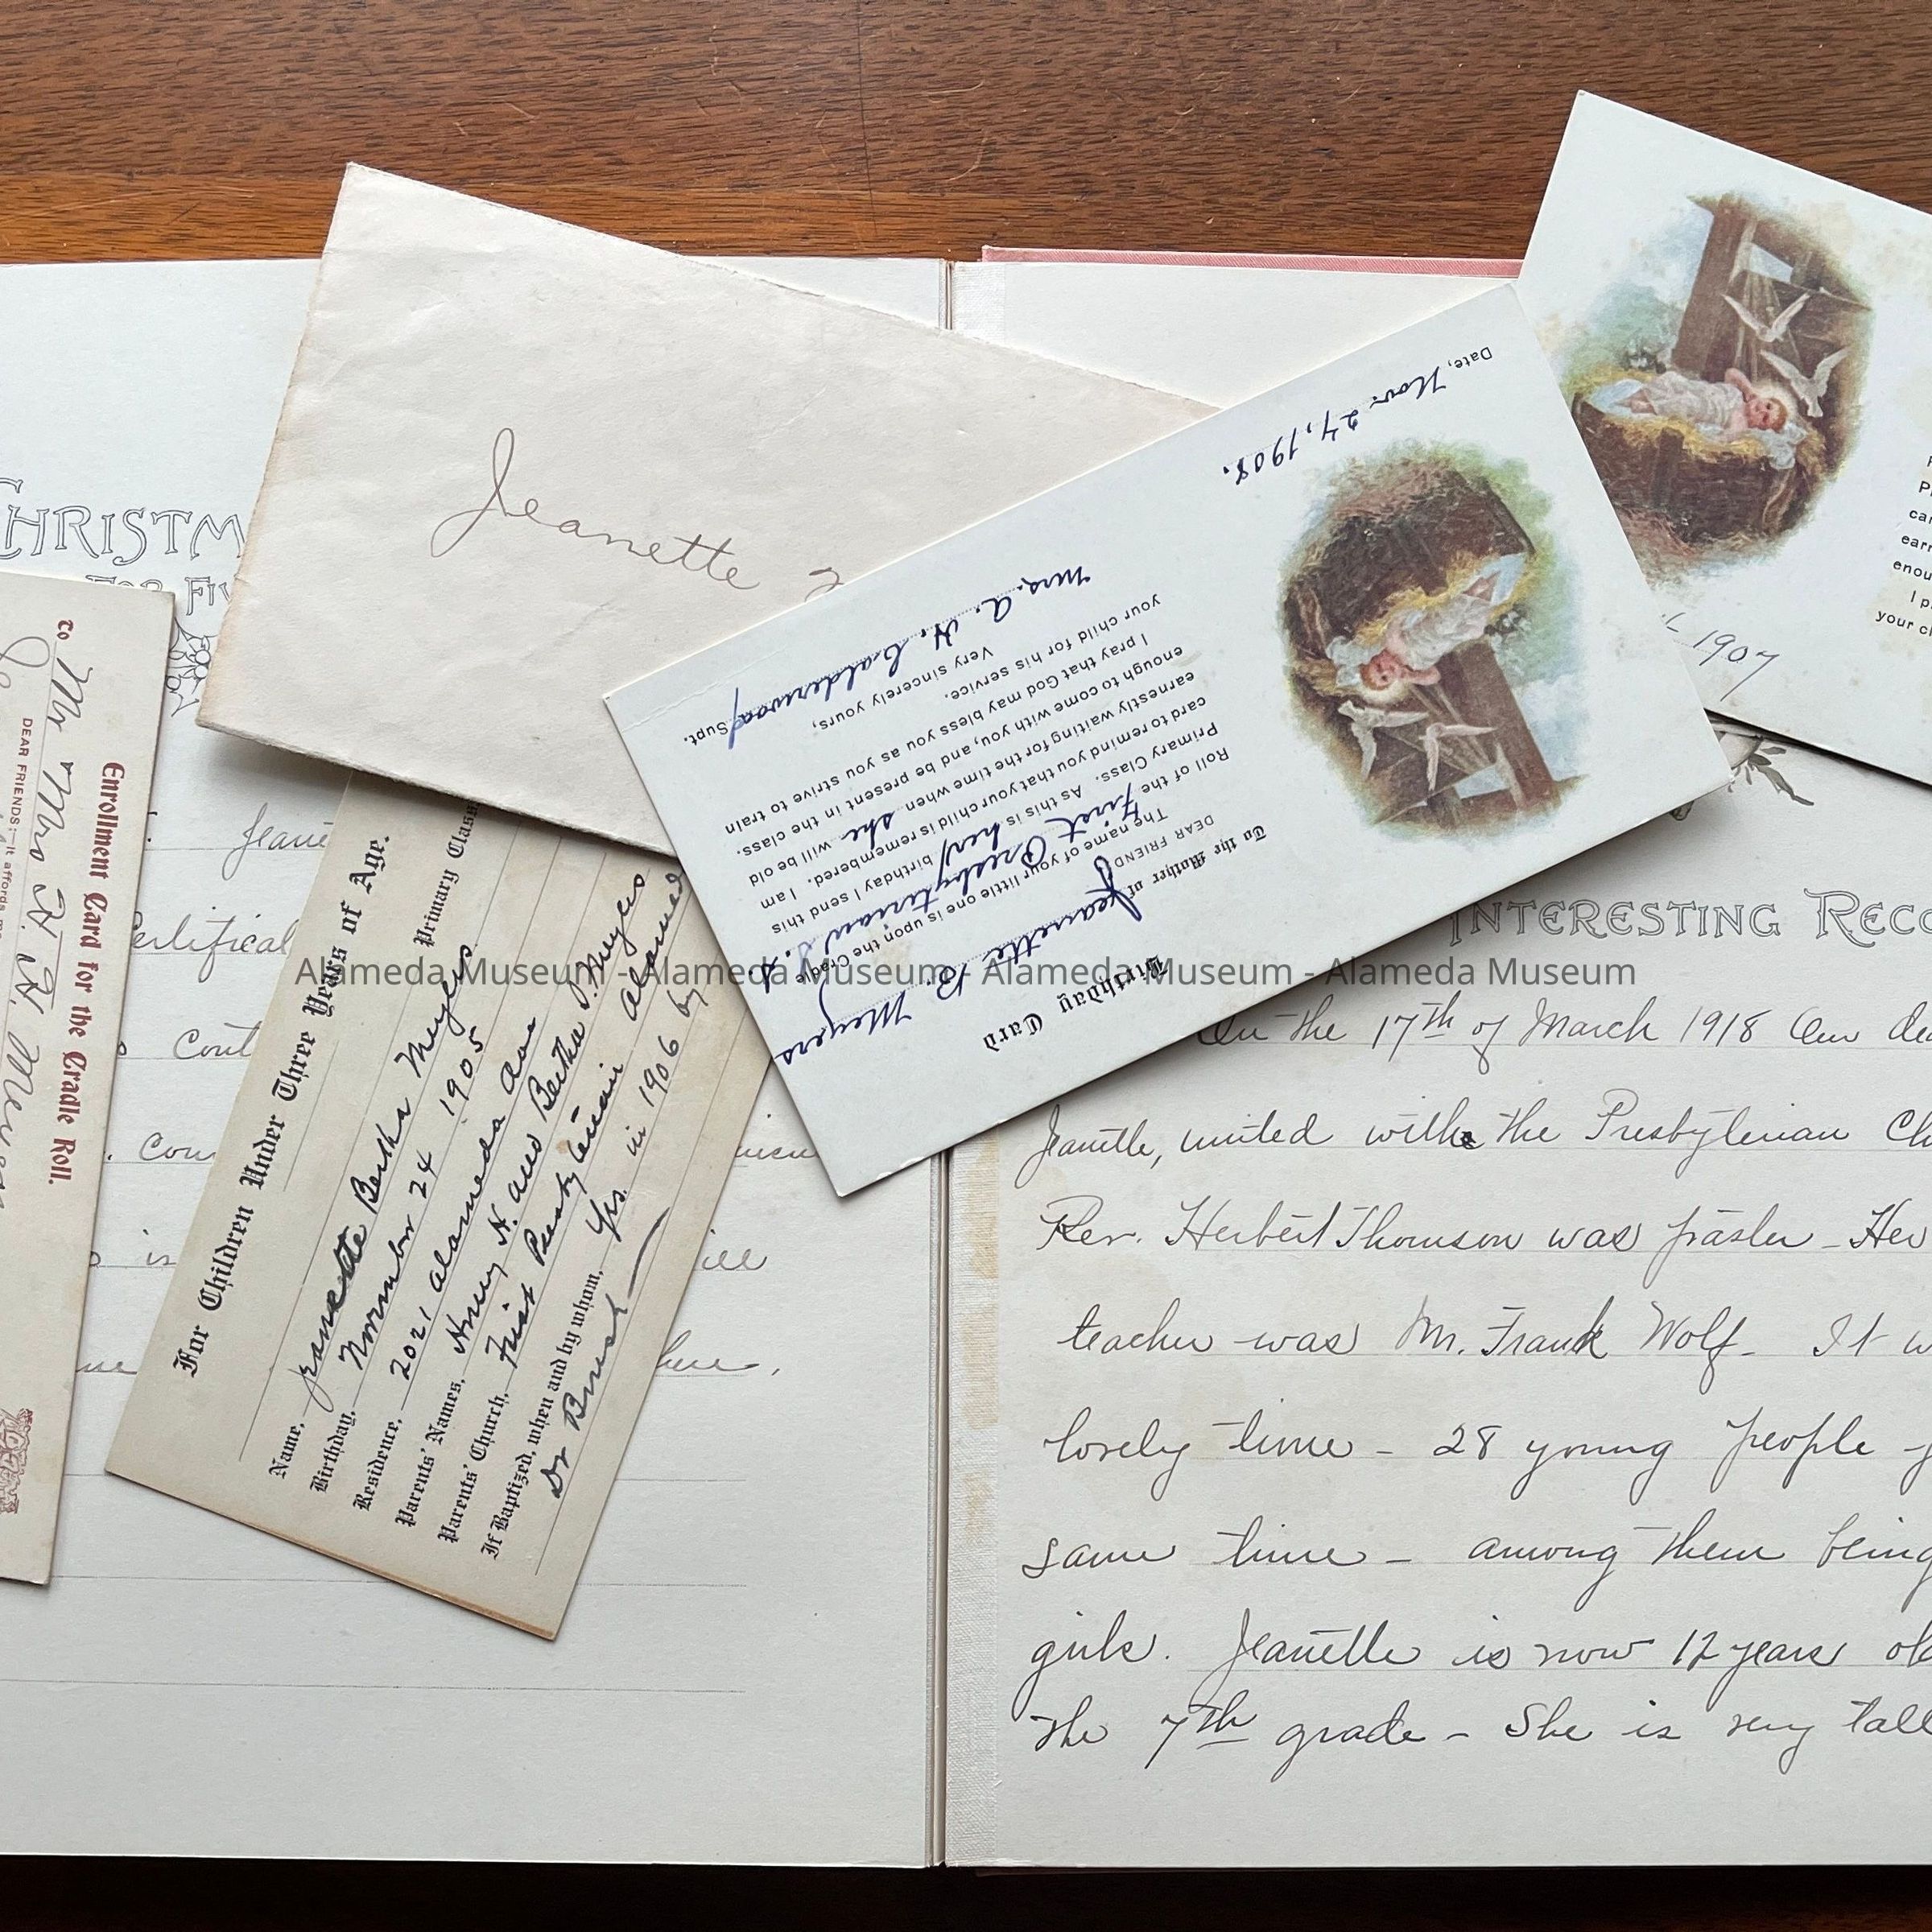 CHRISTM
FOR FIV
Jeanette
To Mr & Mrs H. H. Meyers
DEAR FRIENDS:—It affords me
Enrollment Card for the Cradle Roll.
Certificat
Cont
is
For Children Under Three Years of Age.
Primary Class
Name, Jeanette Bertha Meyers
Birthday, November 24 1905
Residence, 2021 Alameda Ave
Parents' Names, Henry H. and Bertha J. Meyers
Parents' Church, First Presbyterian Alameda
If Baptized, when and by whom, Yes. in 1906 by
Dr Brush
Birthday Card
To the Mother of Jeanette B. Meyers
DEAR FRIEND,
The name of your little one is upon the Cradle
Roll of the First Presbyterian S. S.
Primary Class. As this is her birthday I send this
card to remind you that your child is remembered. I am
earnestly waiting for the time when she will be old
enough to come with you, and be present in the class.
I pray that God may bless you as you strive to train
your child for his service.
Very sincerely yours,
Mrs. A. H. Calderwood Supt.
Date, Nov. 24, 1908.
car
earn
enou
I p
your c
1907
INTERESTING RECO
On the 17th of March 1918 Our de
Jeanette, united with the Presbyterian Ch
Rev. Herbert Thomson was paster - Her
teacher was Mr. Frank Wolf - It w
lovely time - 28 young people
same time - among them being
girls. Jeanette is now 12 years ol
the 7th grade - She is very tall
Alameda Museum - Alameda Museum - Alameda Museum - Alameda Museum